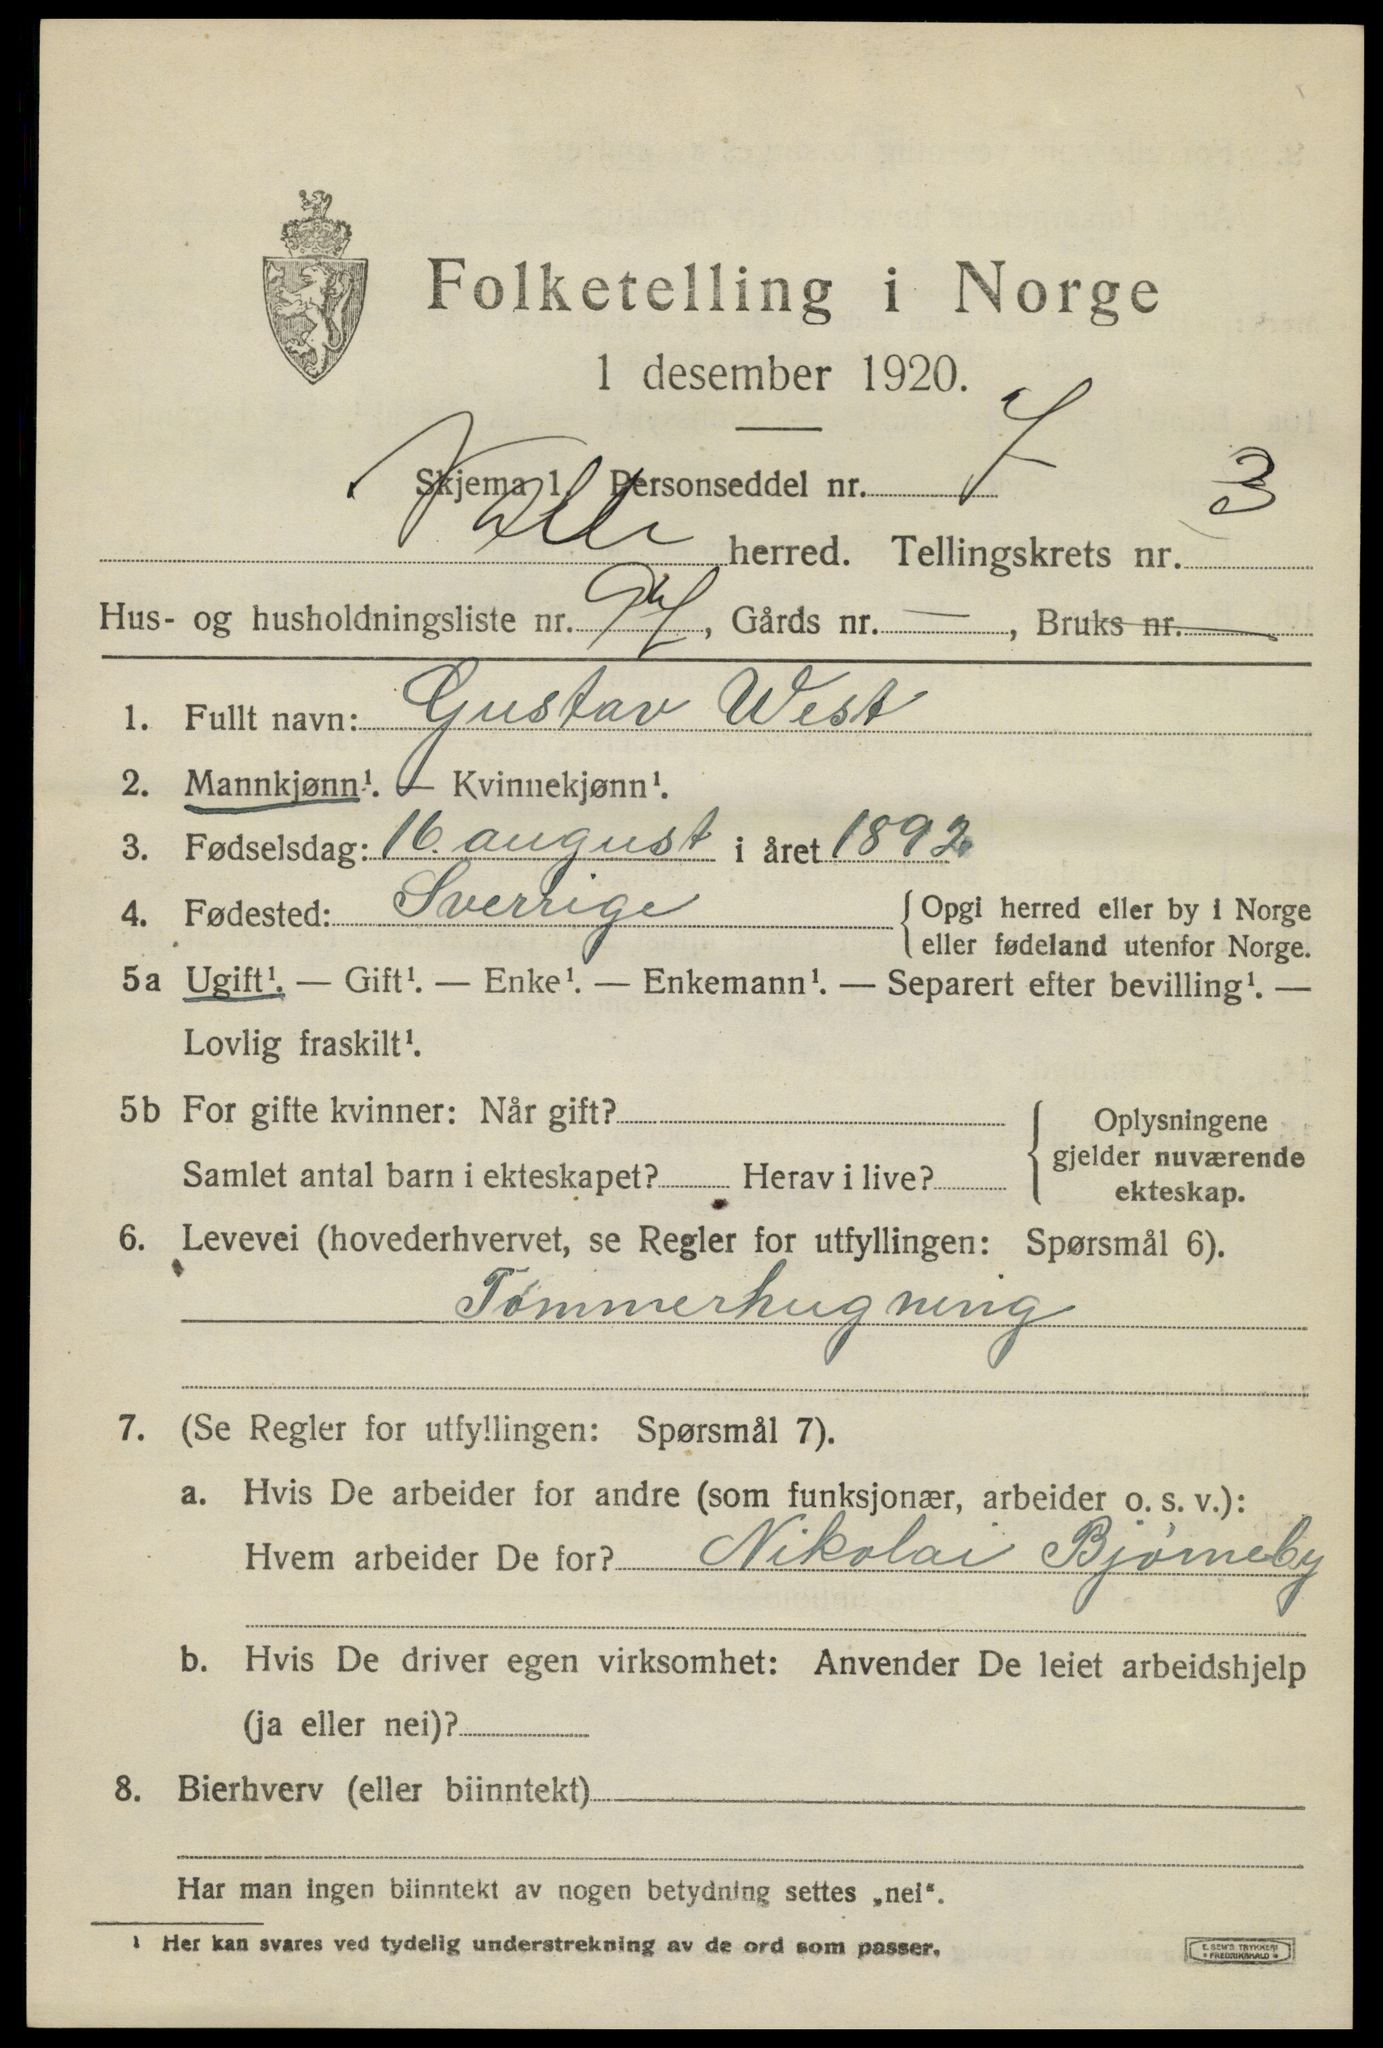 Folketelling i Norge
1 desember 1920.
Skjema 1 Personseddel nr. 7
herred. Tellingskrets nr. 3
Hus- og husholdningsliste nr. , Gårds nr. — , Bruks nr. —
1. Fullt navn: Gustav West
2. Mannkjønn¹. — Kvinnekjønn¹.
3. Fødselsdag: 16. august i året 1892.
4. Fødested: Sverrige {Opgi herred eller by i Norge
eller fødeland utenfor Norge.
5a Ugift¹. — Gift¹. — Enke¹. — Enkemann¹. — Separert efter bevilling¹. —
Lovlig fraskilt¹.
5b For gifte kvinner: Når gift? { Oplysningene
gjelder nuværende
Samlet antal barn i ekteskapet? Herav i live?
ekteskap.
6. Levevei (hovederhvervet, se Regler for utfyllingen: Spørsmål 6).
Tømmerhugning
7. (Se Regler for utfyllingen: Spørsmål 7).
a. Hvis De arbeider for andre (som funksjonær, arbeider o. s. v.):
Hvem arbeider De for? Nikolai Bjørneby
b. Hvis De driver egen virksomhet: Anvender De leiet arbeidshjelp
(ja eller nei)?
8. Bierhverv (eller biinntekt)
Har man ingen biinntekt av nogen betydning settes „nei“.
¹ Her kan svares ved tydelig understrekning av de ord som passer.
E. SEM'S TRYKKERI
FREDRIKSHALD